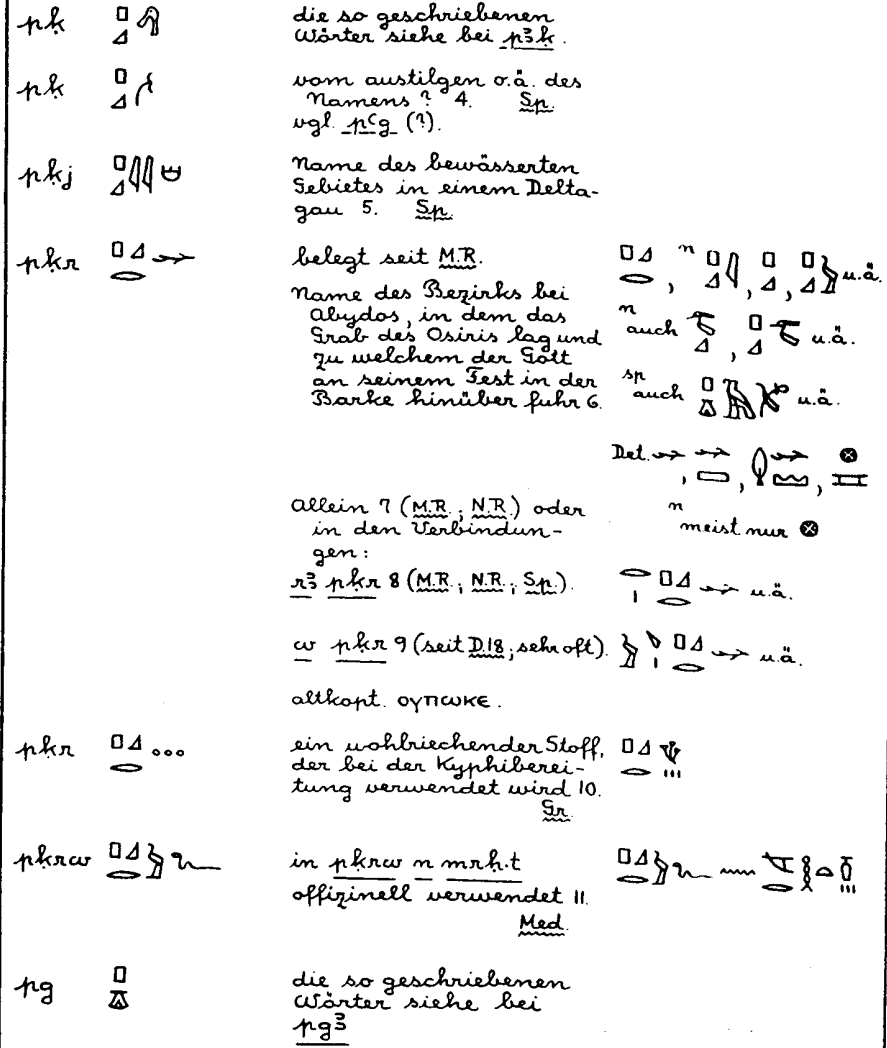 pḳ die so geschriebenen
Wörter siehe bei pꜣḳ.
pḳ vom austilgen o.ä. des
Namens? 4. Sp.
vgl. pꜥg (?).
pḳj Name des bewässerten
Gebietes in einem Delta-
gau 5. Sp.
pḳr belegt seit M.R.
Name des Bezirks bei
Abydos, in dem das
Grab des Osiris lag und
zu welchem der Gott
an seinem Fest in der
Barke hinüber fuhr 6.
n u.ä.
n auch u.ä.
sp auch u.ä.
Det.
n meist nur
Allein 7 (M.R.; N.R.) oder
in den Verbindun-
gen:
rꜣ pḳr 8 (M.R.; N.R.; Sp.). u.ä.
w pḳr 9 (seit D.18; sehr oft). u.ä.
altkopt. ⲟⲩⲡⲱⲕⲉ.
pḳr ein wohlriechender Stoff,
der bei der Kyphiberei-
tung verwendet wird 10.
Gr.
pḳrw in pḳrw n mrḥ.t
offizinell verwendet 11.
Med.
pg die so geschriebenen
Wörter siehe bei
pgꜣ